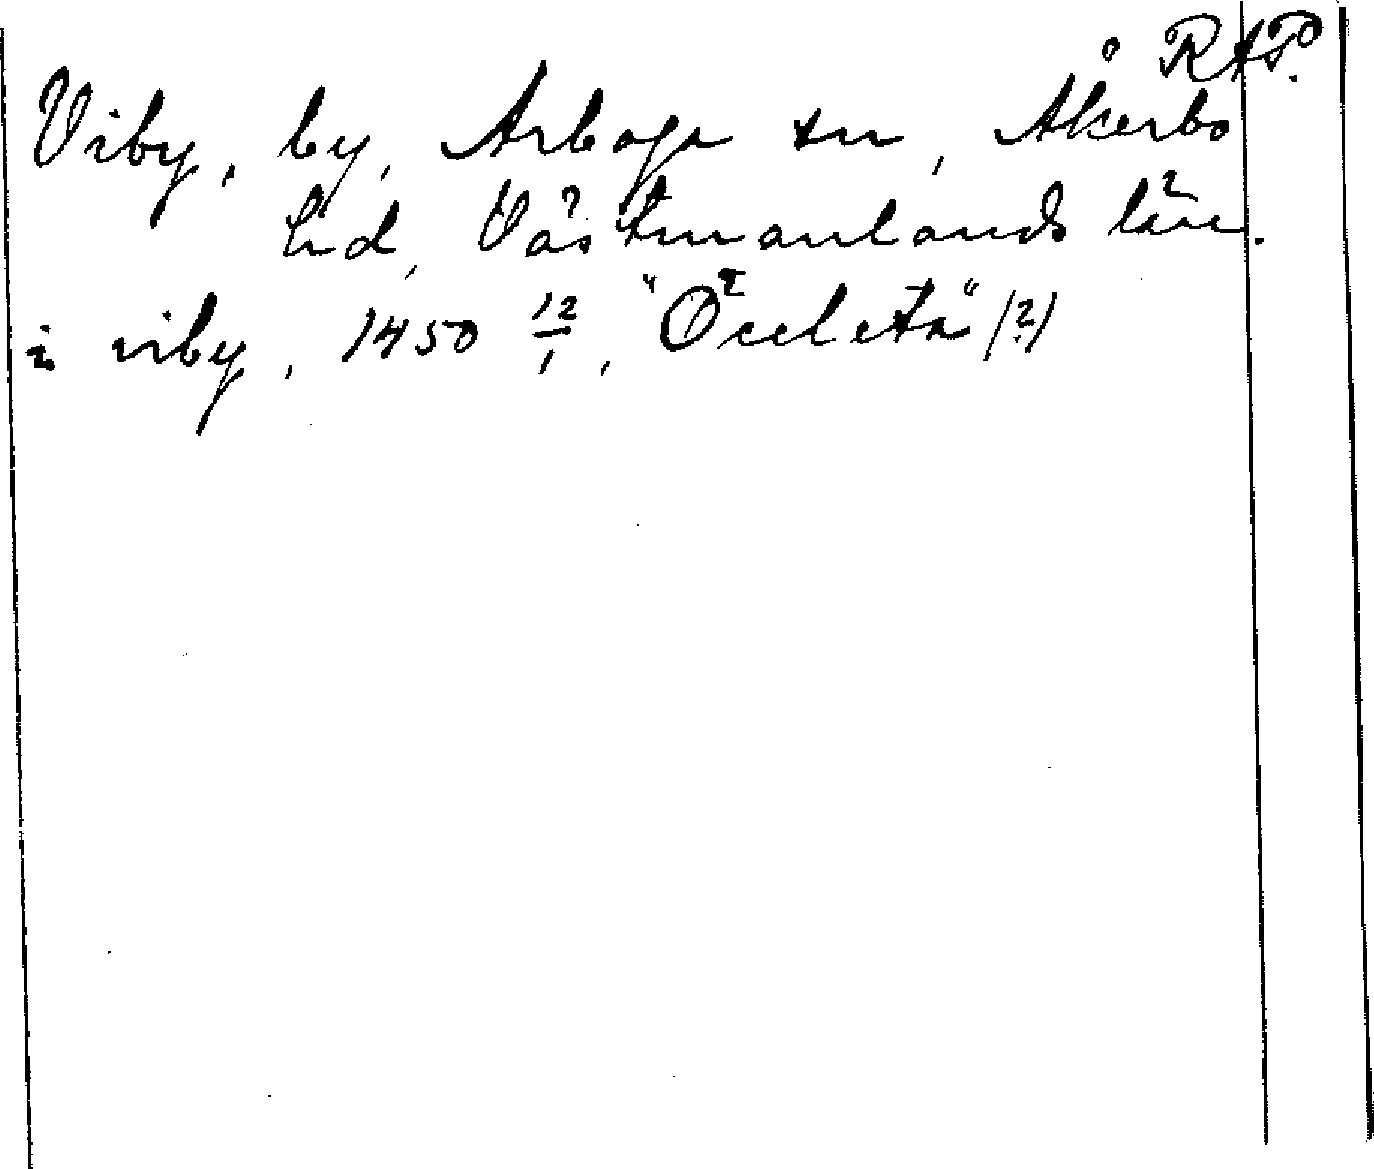 RAP.
Viby, by, Arboga sn, Åkerbo
hd, Västmanlands län.
i viby, 1450 12/1, (?)